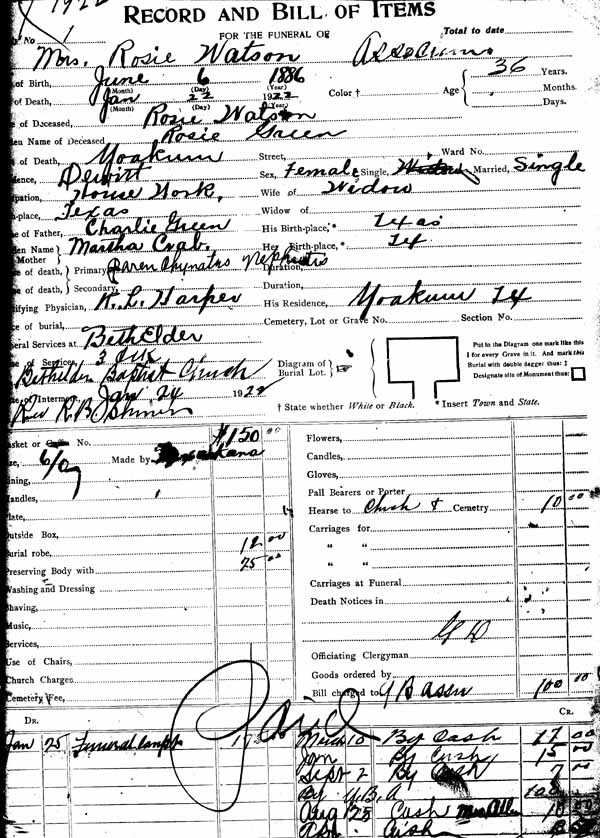 RECORD AND BILL OF ITEMS
FOR THE FUNERAL OF
Total to date
No 1
Mrs. Rosie Watson
of Birth, June 6 1886
(Month) (Day) (Year)
of Death, Jan 22 1922
(Month) (Day) (Year)
Color †
Age 36 Years.
Months.
Days.
of Deceased, Rosie Watson
den Name of Deceased, Rosie Green
of Death, Yoakum Street, Ward No.
dence, Dewitt Sex, Female Single, Widow Married, Single
pation, House Work, Wife of Widow
h-place, Texas Widow of
e of Father, Charlie Green His Birth-place,* Texas
den Name Mother Martha Crab. Her Birth-place,* Tx
e of death, Primary Nephritis Duration,
e of death, Secondary Duration,
ifying Physician, R. L. Harper His Residence, Yoakum Tx
e of burial, Cemetery, Lot or Grave No. Section No.
eral Services at Beth Elder
e of Services, 3 clk
Baptist Church
of Interment, Jan 24 1922
Rev R. B.
Diagram of Burial Lot.
Put in the Diagram one mark like this
‡ for every Grave in it. And mark this
Burial with double dagger thus: ‡
Designate site of Monument thus:
† State whether White or Black. * Insert Town and State.
asket or No. $150 00
ze, 6/0 Made by Texarkana
ining,
Handles,
Plate,
Outside Box,
Burial robe, 12 00
Preserving Body with 25 00
Washing and Dressing
Shaving,
Music,
Services,
Use of Chairs,
Church Charges
Cemetery Fee,
Flowers,
Candles,
Gloves,
Pall Bearers or Porter
Hearse to Church & Cemetry 10 00
Carriages for
" "
" "
Carriages at Funeral
Death Notices in
Officiating Clergyman
Goods ordered by
Bill charged to U B Assn 100 00
Paid
DR. CR.
Jan 25 Funeral
March 10 By Cash 17 00
Jan By Cash 15 00
Sept 2 By Cash 7 00
By U.B.A 100
Aug 125 Cash 10 00
Cash